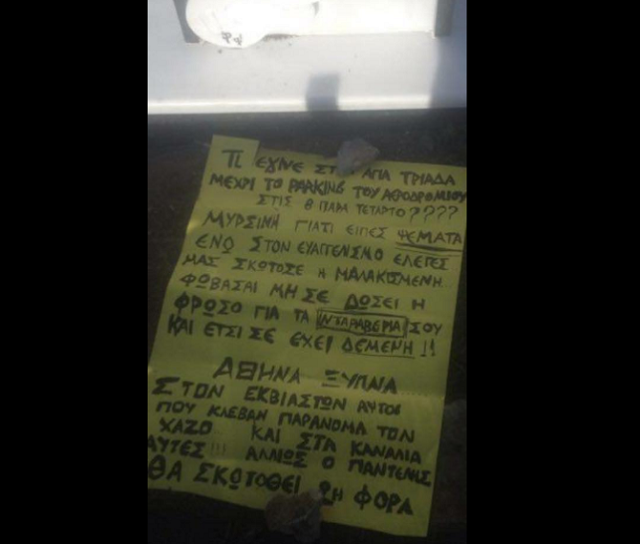 ΤΙ ΕΓΙΝΕ ΣΤ ΑΓΙΑ ΤΡΙΑΔΑ
ΜΕΧΡΙ ΤΟ PARKING ΤΟΥ ΑΕΡΟΔΡΟΜΙΟΥ
ΣΤΙΣ 8 ΠΑΡΑ ΤΕΤΑΡΤΟ????
ΜΥΡΣΙΝΗ ΓΙΑΤΙ ΕΙΠΕΣ ΨΕΜΑΤΑ
ΕΝΩ ΣΤΟΝ ΕΥΑΓΓΕΝΙΣΜΟ ΕΛΕΓΕΣ
ΜΑΣ ΣΚΩΤΟΣΕ Η ΜΑΛΑΚΙΣΜΕΝΗ
ΦΩΒΑΣΑΙ ΜΗ ΣΕ ΔΩΣΕΙ Η
ΦΡΩΣΟ ΓΙΑ ΤΑ ΝΤΑΡΑΒΕΡΙΑ ΣΟΥ
ΚΑΙ ΕΤΣΙ ΣΕ ΕΧΕΙ ΔΕΜΕΝΗ!!
ΑΘΗΝΑ ΞΥΠΝΑ
ΣΤΟΝ ΕΚΒΙΑΣΤΩΝ ΑΥΤΟΙ
ΠΟΥ ΚΛΕΒΑΝ ΠΑΡΑΝΟΜΑ ΤΟΝ
ΧΑΖΟ ΚΑΙ ΣΤΑ ΚΑΝΑΛΙΑ
ΑΥΤΕΣ!!! ΑΛΛΙΩΣ Ο ΠΑΝΤΕΛΗΣ
ΘΑ ΣΚΩΤΟΘΕΙ 2Η ΦΟΡΑ